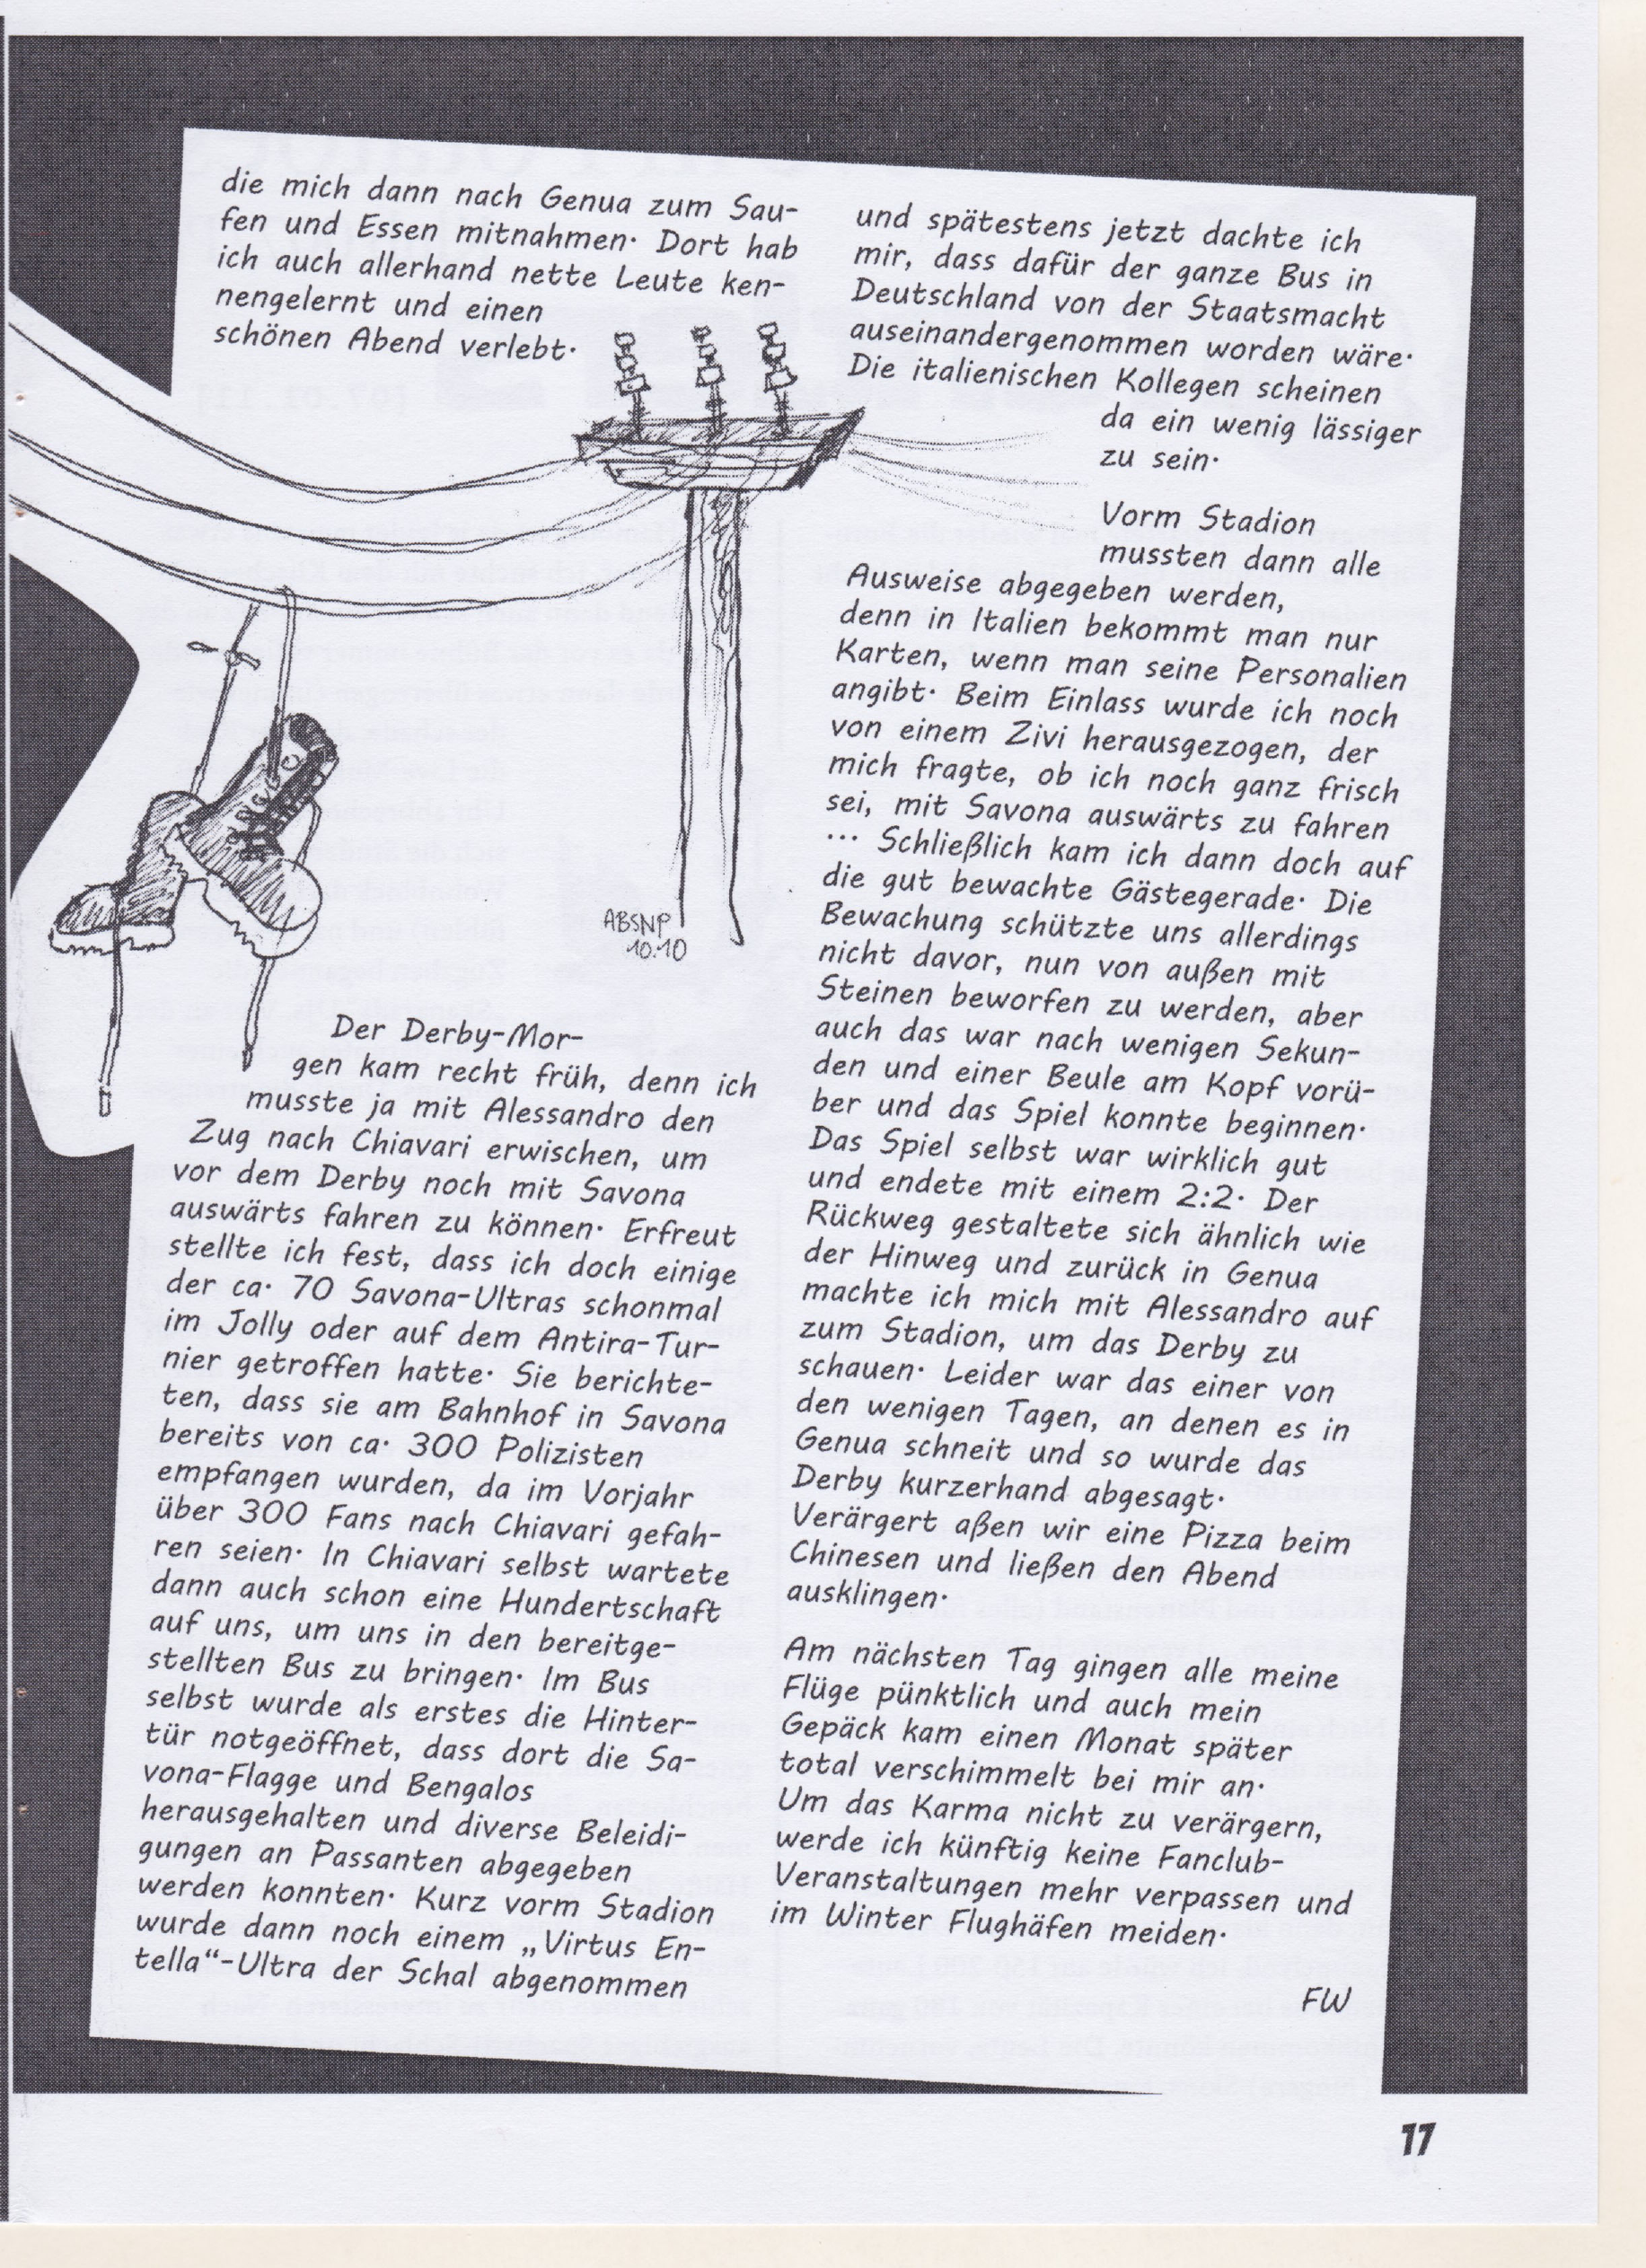 die mich dann nach Genua zum Sau-
fen und Essen mitnahmen. Dort hab
ich auch allerhand nette Leute ken-
nengelernt und einen
schönen Abend verlebt.
ABSNP
10.10
Der Derby-Mor-
gen kam recht früh, denn ich
musste ja mit Alessandro den
Zug nach Chiavari erwischen, um
vor dem Derby noch mit Savona
auswärts fahren zu können. Erfreut
stellte ich fest, dass ich doch einige
der ca. 70 Savona-Ultras schonmal
im Jolly oder auf dem Antira-Tur-
nier getroffen hatte. Sie berichte-
ten, dass sie am Bahnhof in Savona
bereits von ca. 300 Polizisten
empfangen wurden, da im Vorjahr
über 300 Fans nach Chiavari gefah-
ren seien. In Chiavari selbst wartete
dann auch schon eine Hundertschaft
auf uns, um uns in den bereitge-
stellten Bus zu bringen. Im Bus
selbst wurde als erstes die Hinter-
tür notgeöffnet, dass dort die Sa-
vona-Flagge und Bengalos
herausgehalten und diverse Beleidi-
gungen an Passanten abgegeben
werden konnten. Kurz vorm Stadion
wurde dann noch einem „Virtus En-
tella“-Ultra der Schal abgenommen
und spätestens jetzt dachte ich
mir, dass dafür der ganze Bus in
Deutschland von der Staatsmacht
auseinandergenommen worden wäre.
Die italienischen Kollegen scheinen
da ein wenig lässiger
zu sein.
Vorm Stadion
mussten dann alle
Ausweise abgegeben werden,
denn in Italien bekommt man nur
Karten, wenn man seine Personalien
angibt. Beim Einlass wurde ich noch
von einem Zivi herausgezogen, der
mich fragte, ob ich noch ganz frisch
sei, mit Savona auswärts zu fahren
... Schließlich kam ich dann doch auf
die gut bewachte Gästegerade. Die
Bewachung schützte uns allerdings
nicht davor, nun von außen mit
Steinen beworfen zu werden, aber
auch das war nach wenigen Sekun-
den und einer Beule am Kopf vorü-
ber und das Spiel konnte beginnen.
Das Spiel selbst war wirklich gut
und endete mit einem 2:2. Der
Rückweg gestaltete sich ähnlich wie
der Hinweg und zurück in Genua
machte ich mich mit Alessandro auf
zum Stadion, um das Derby zu
schauen. Leider war das einer von
den wenigen Tagen, an denen es in
Genua schneit und so wurde das
Derby kurzerhand abgesagt.
Verärgert aßen wir eine Pizza beim
Chinesen und ließen den Abend
ausklingen.
Am nächsten Tag gingen alle meine
Flüge pünktlich und auch mein
Gepäck kam einen Monat später
total verschimmelt bei mir an.
Um das Karma nicht zu verärgern,
werde ich künftig keine Fanclub-
Veranstaltungen mehr verpassen und
im Winter Flughäfen meiden.
FW
17